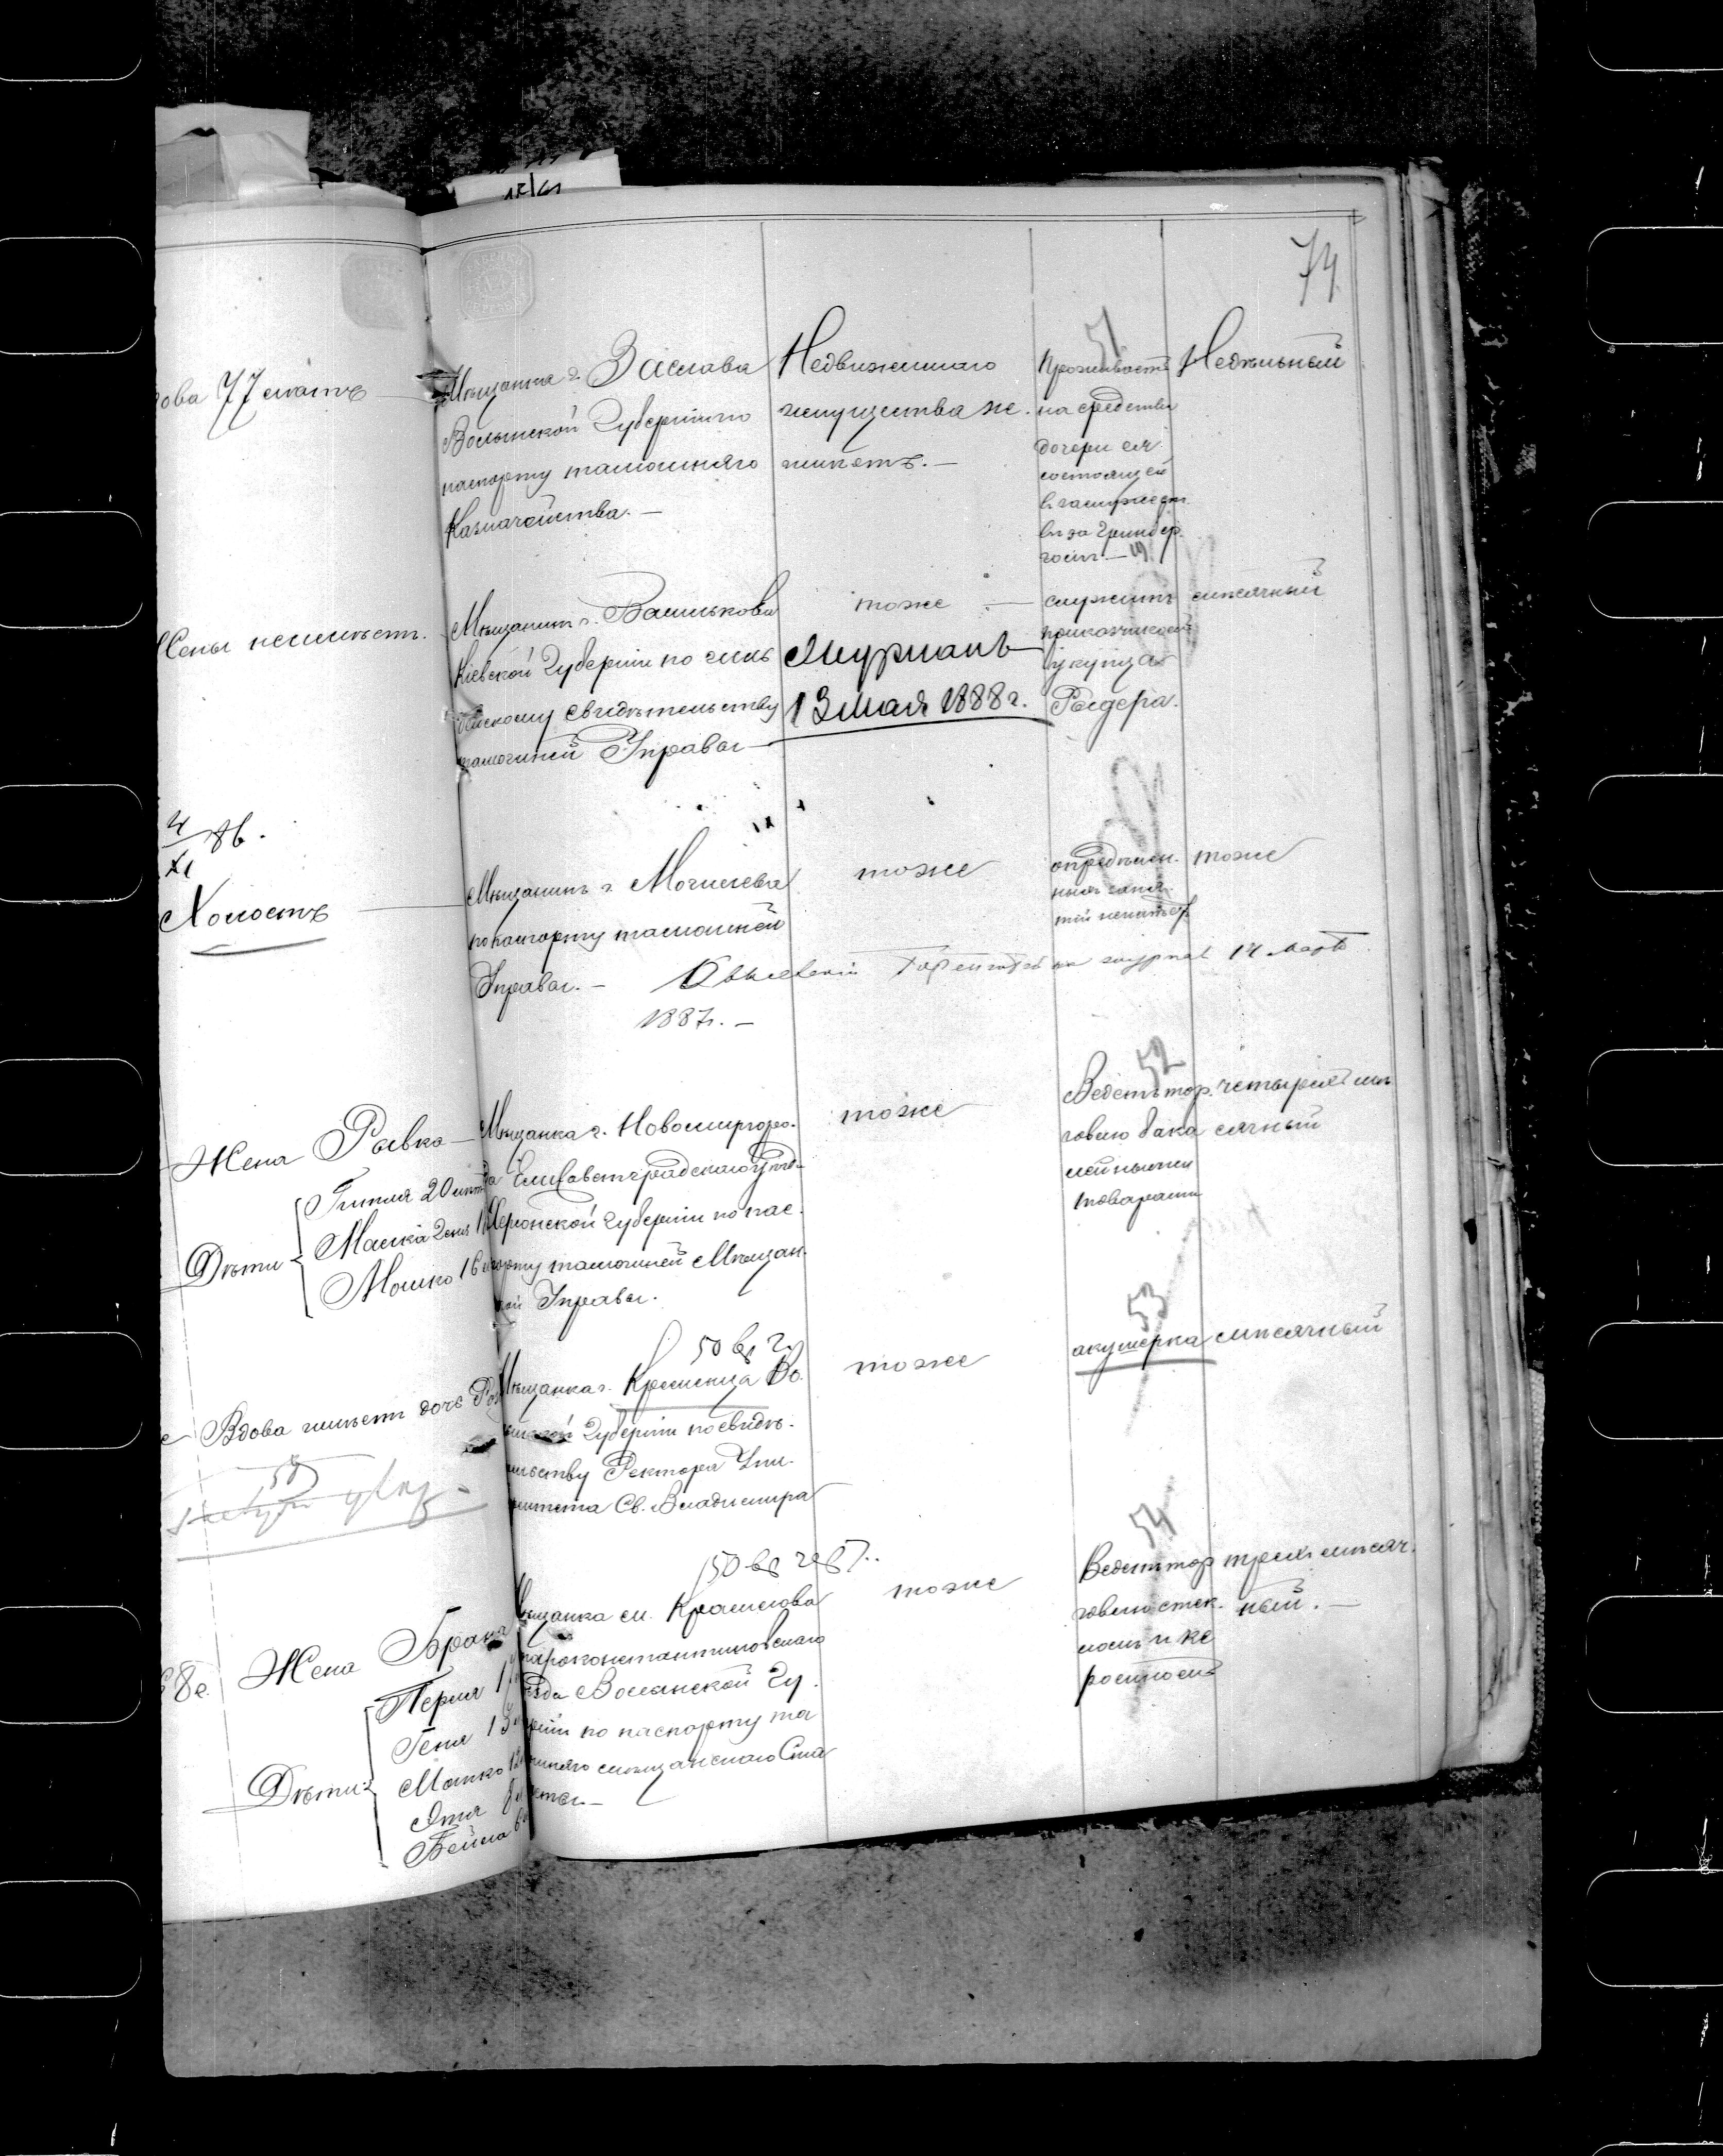 15/61
74
51
ова 77 летъ
Мѣщанка г. Заслава
Волынской Губерніи по
паспорту тамошняго
Казначейства. —
Недвижимаго
имущества не
имѣетъ. —
Проживаетъ
на средства
дочери ея
состоящей
въ замужест
вѣ за
Недѣльный
Жены неимѣетъ.
Мѣщанинъ г. Василькова
Кіевской Губерніи по
свидѣтельству
тамошней Управы —
тоже —
Журналъ
13 мая 1888 г.
служитъ
прикащикомъ
у купца
мѣсячный
4/XI 86.
Холостъ
Мѣщанинъ г. Могилева
по паспорту тамошней
Управы. —
журнал 14 марта
1887 г. —
тоже
опредѣлен.
ныхъ заня-
тій неимѣетъ
тоже
52
Жена Рывка —
Дѣти
Гитля 20 лѣт
Малка
Мошко 16
Мѣщанка г. Новомиргоро-
да Елисаветградскаго уѣз-
Херсонской губерніи по пас-
порту тамошней Мѣщан-
ской Управы.
тоже
Ведетъ тор.
говлю бака
лейными
товарами
четырехъ мѣ
сячный
53
50 вр г.
Вдова имѣетъ дочь
50
Мѣщанка г. Кременца Во.
лынской Губерніи по свидѣ-
тельству Ректора Уни-
верситета Св. Владимира
тоже
акушерка
мѣсячный
54
50 вр
8 е.
Жена Брана
Дѣти:
Перля 1
Геня 13
Мошко 12
Бейла 6
Мѣщанка м. Красилова
Староконстантиновскаго
уѣзда Волынской Гу.
берніи по паспорту та
мошняго мѣщанскаго Ста
росты —
тоже
Ведетъ тор
говлю стек.
ломъ и ке
росиномъ
трехъ мѣсяч.
ный. —